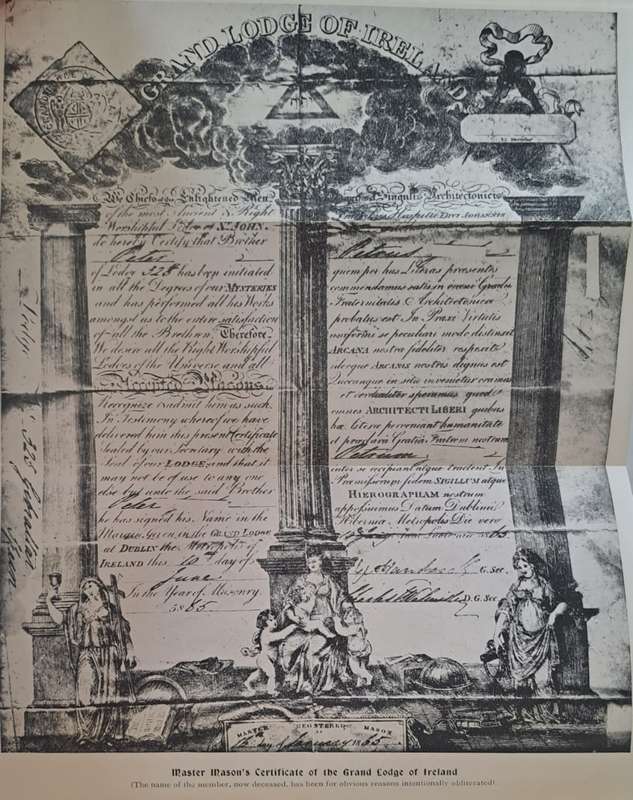 GRAND LODGE OF IRELAND
We Chiefs of the Enlightened Men
of the most Ancient & Right
Worshipful Lodge of St. JOHN.
do hereby Certify that Brother
Peter
of Lodge 325 has been initiated
in all the Degrees of our MYSTERIES
and has performed all his Works
amongst us to the entire satisfaction
of all the Brethren. Therefore
We desire all the Right Worshipful
Lodges of the Universe and all
Accepted Masons
Recognize & admit him as such.
In Testimony whereof we have
delivered him this present Certificate
Sealed by our Secretary with the
Seal of our LODGE and that it
may not be of use to any one
else but unto the said Brother
Peter
he has signed his Name in the
Margin. Given in the GRAND LODGE
at DUBLIN the Metropolis of
IRELAND this day of
June
In the Year of Masonry
5865
Singulis Architectonicis
Petrum
quem per has Literas praesentes
commendamus satis in omne Gradu
Fraternitatis & Architectonicae
probatus est In Praxi Virtutis
ARCANA nostra fideliter
adeoque ARCANIS nostris dignus est
Quocunque in sitio invenietur oramus
et cordialiter speramus quod
omnes ARCHITECTI LIBERI quibus
hae Literae perveniant humanitate
et praeclara Gratia Fratrem nostrum
Petrum
inter se recipiant atque tractent In
fidem SIGILLUM atque
HIEROGRAPHAM nostram
apposuimus Datum Dublinii
Hiberniae Metropolis Die vero
G. Sec.
D. G. Sec.
Lodge 325 Gibraltar
MASTER REGISTERED MASON
1865
Master Mason's Certificate of the Grand Lodge of Ireland
(The name of the member, now deceased, has been for obvious reasons intentionally obliterated).